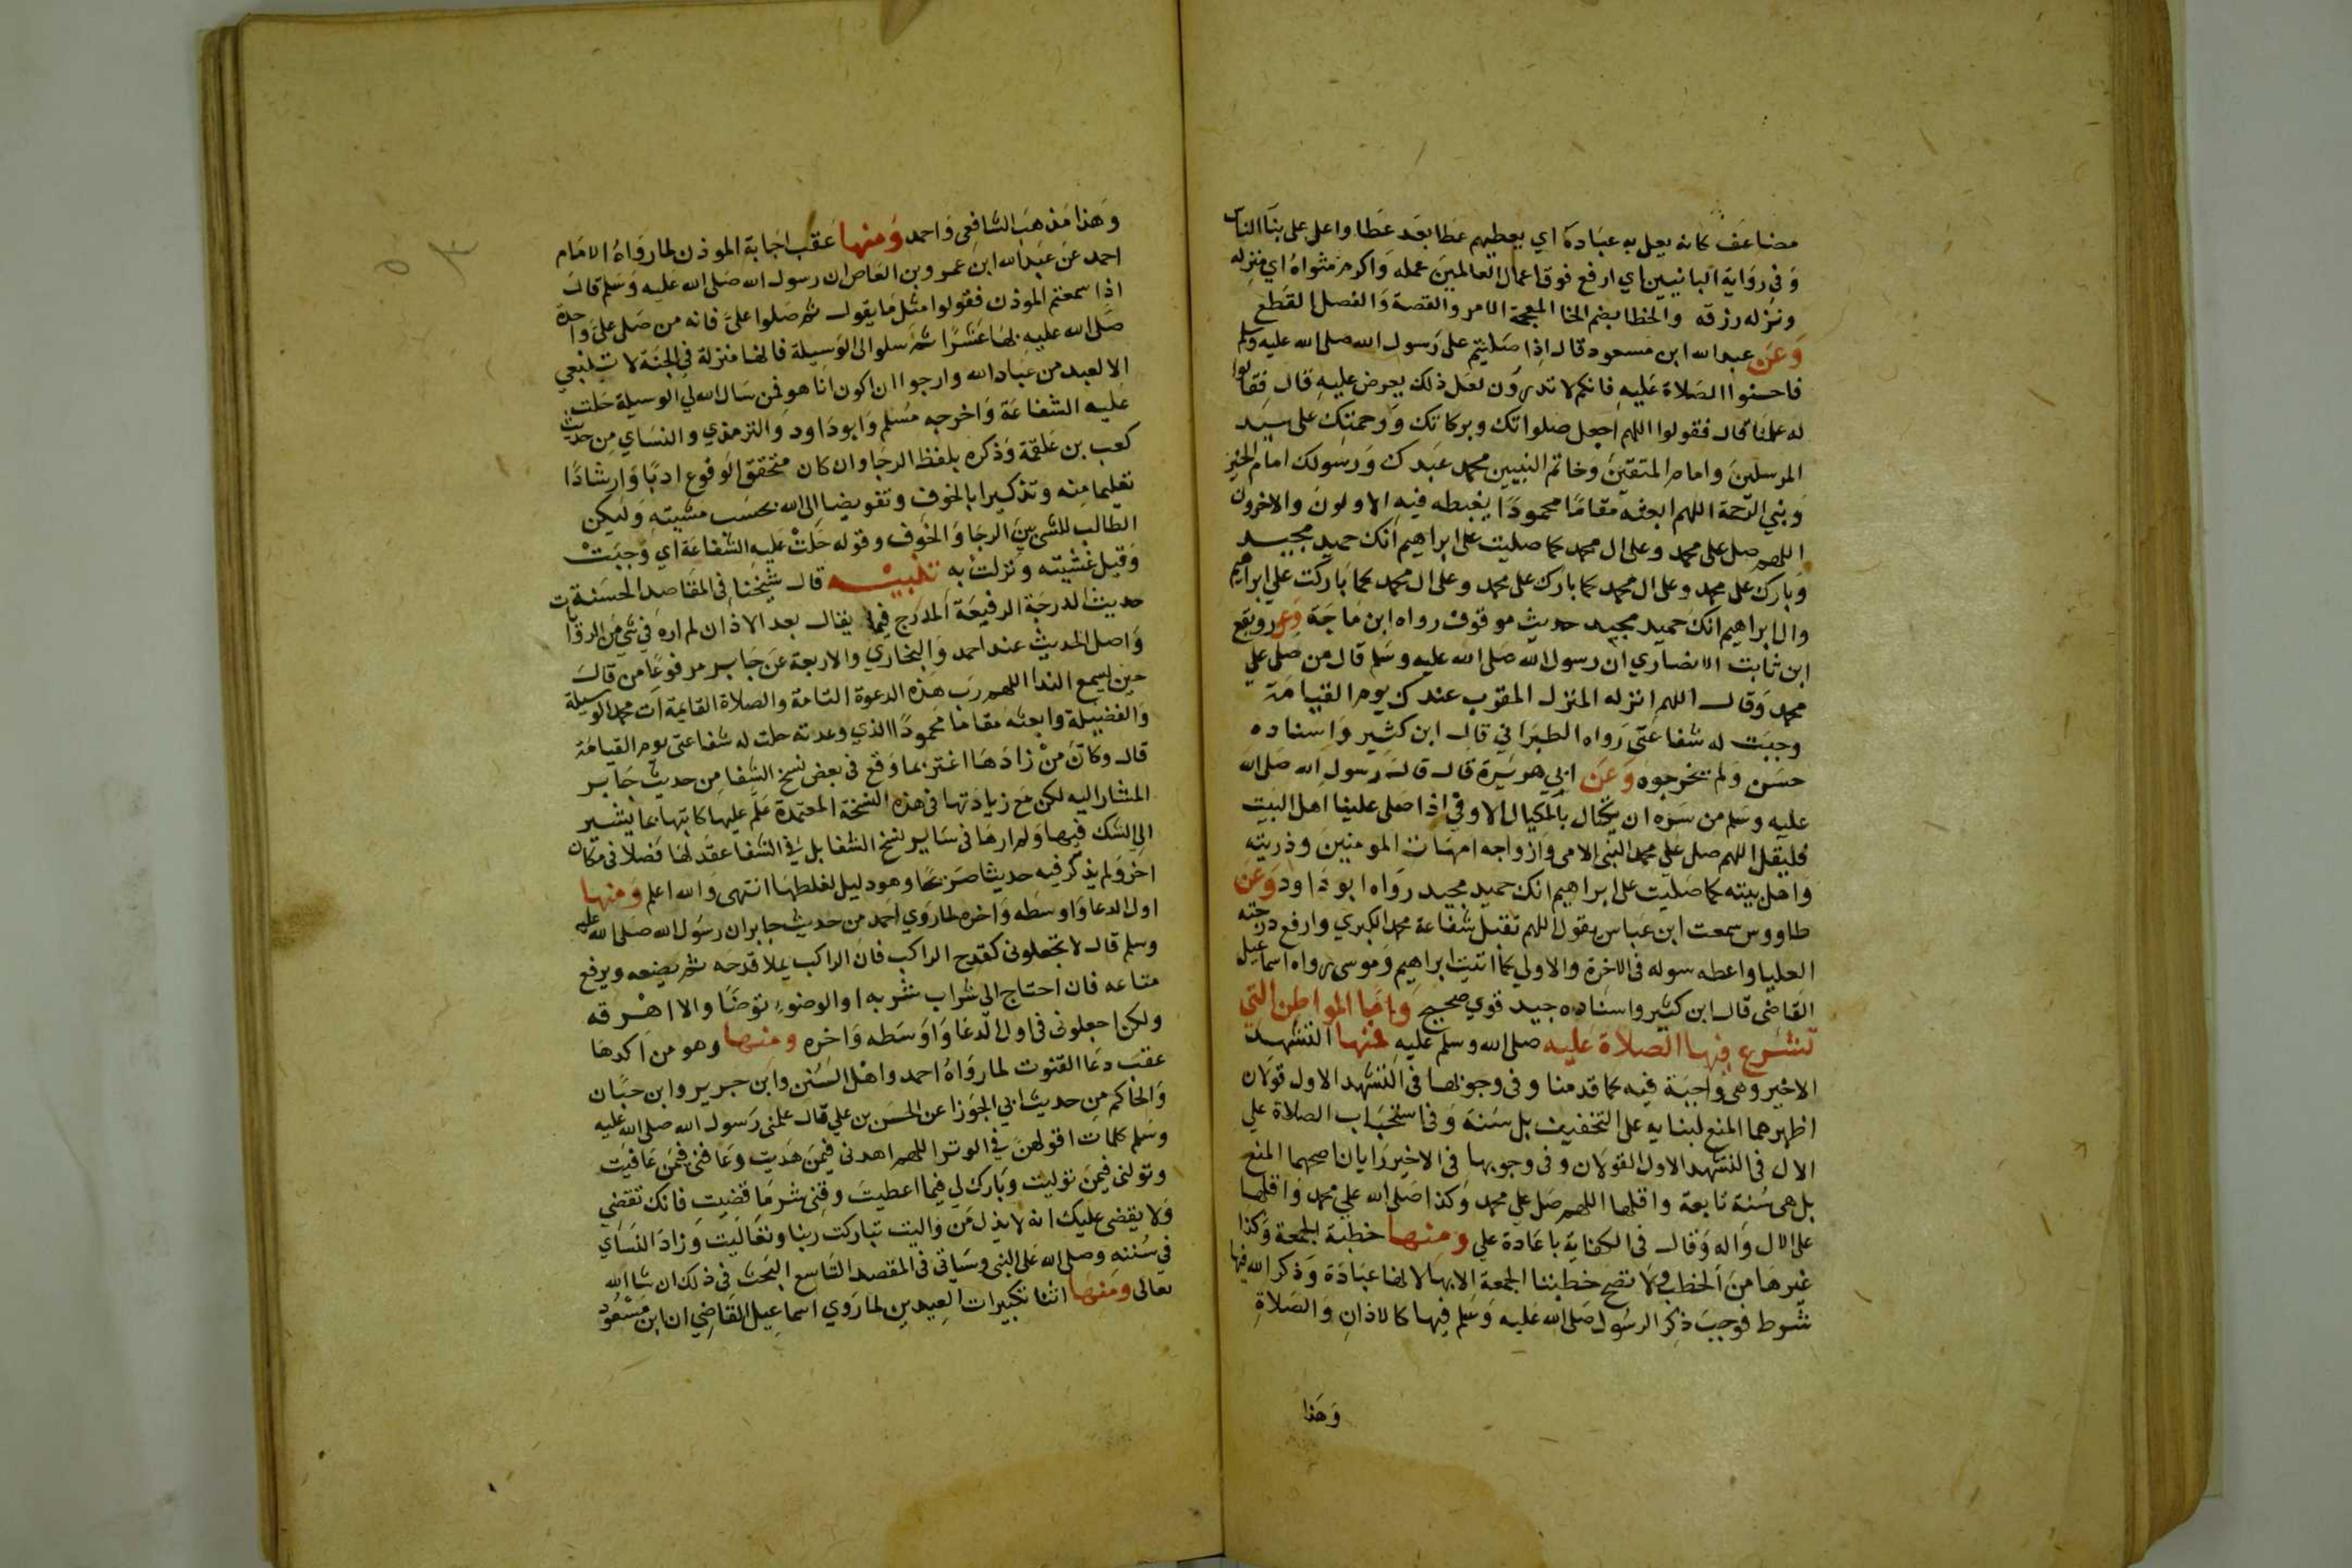 مضاعف كانه يعل به عباده اي يعطيهم عطا بعد عطا واعل على بنا الناس
وفي رواية البانيين اي ارفع فوق اعمال العالمين عمله واكرم مثواه اي منزله
ونزله رزقه والخطا بضم الخا المعجمة الامر والقصة والفصل القطع
وعن عبد الله ابن مسعود قال اذا صليتم على رسول الله صلى الله عليه وسلم
فاحسنوا الصلاة عليه فانكم لا تدرون لعل ذلك يعرض عليه قال فقالوا
له علمنا قال فقولوا اللهم اجعل صلواتك وبركاتك ورحمتك على سيد
المرسلين وامام المتقين وخاتم النبيين محمد عبدك ورسولك امام الخير
ونبي الرحمة اللهم ابعثه مقاما محمودا يغبطه فيه الاولون والاخرون
اللهم صل على محمد وعلى ال محمد كما صليت على ابراهيم انك حميد مجيد
وبارك على محمد وعلى ال محمد كما باركت على محمد وعلى ال محمد كما باركت على ابراهيم
وال ابراهيم انك حميد مجيد حديث موقوف رواه ابن ماجة وعن رويفع
ابن ثابت الانصاري ان رسول الله صلى الله عليه وسلم قال من صلى على
محمد وقال اللهم انزله المنزل المقرب عندك يوم القيامة
وجبت له شفاعتي رواه الطبراني قال ابن كثير واسناده
حسن ولم يخرجوه وعن ابي هريرة قال قال رسول الله صلى الله
عليه وسلم من سره ان يكتال بالمكيال الاوفي اذا صلى علينا اهل البيت
فليقل اللهم صل علي محمد النبي الامي وازواجه امهات المومنين وذريته
واهل بيته كما صليت على ابراهيم انك حميد مجيد رواه ابو داود وعن
طاووس سمعت ابن عباس يقول اللهم تقبل شفاعة محمد الكبري وارفع درجته
العليا واعطه سوله في الاخرة والاولي كما اتيت ابراهيم وموسى رواه اسماعيل
القاضي قال ابن كثير واسناده جيد قوي صحيح واما المواطن التي
تشرع فيها الصلاة عليه صلى الله وسلم عليه فمنها التشهد
الاخير وهي واجبة فيه كما قدمنا وفي وجوبها في التشهد الاول قولان
اظهرهما المنع لبنايه على التخفيف بل سنة وفي استحباب الصلاة علي
الال في التشهد الاول القولان وفي وجوبها في الاخير رايان اصحهما المنع
بل هي سنة تابعة واقلها اللهم صل علي محمد وكذا صلى الله علي محمد واقلها
على الال واله وقال في الكفاية باعادة علي ومنها خطبة الجمعة وكذا
غيرها من الخطب ولا تصح خطبتا الجمعة الا بها لانها عبادة وذكر الله فيها
شرط فوجب ذكر الرسول صلى الله عليه وسلم فيها كالاذان والصلاة
وهذا
وهذا مذهب الشافعي واحمد ومنها عقب اجابة الموذن لما رواه الامام
احمد عن عبد الله ابن عمرو بن العاص ان رسول الله صلى الله عليه وسلم قال
اذا سمعتم الموذن فقولوا مثل ما يقول ثم صلوا علي فانه من صلى علي واحدة
صلى الله عليه بها عشرا ثم سلوا لي الوسيلة فانها منزلة في الجنة لا تنبغي
الا لعبد من عباد الله وارجوا ان اكون انا هو فمن سال الله لي الوسيلة حلت
عليه الشفاعة واخرجه مسلم وابو داود والترمذي والنساي من حديث
كعب بن علقمة وذكره بلفظ الرجا وان كان متحقق الوقوع ادبا وارشادا
تعليما منه وتذكيرا بالخوف وتفويضا الى الله بحسب مشيته وليكن
الطالب للشي بين الرجا والخوف وقوله حلت عليه الشفاعة اي وجبت
وقيل غشيته ونزلت به تنبيه قال شيخنا في المقاصد الحسنة
حديث الدرجة الرفيعة المدرج فيما يقال بعد الاذان لم اره في شي من الروايات
واصل الحديث عند احمد والبخاري والاربعة عن جابر مرفوعا من قال
حين يسمع الندا اللهم رب هذه الدعوة التامة والصلاة القايمة ات محمد الوسيلة
والفضيلة وابعثه مقاما محمودا الذي وعدته حلت له شفاعتي يوم القيامة
قال وكان من زادها اغتر بما وقع في بعض نسخ الشفا من حديث جابر
المشار اليه لكن مع زيادتها في هذه النسخة المعتمدة علم عليها كاتبها بما يشير
الى الشك فيها ولم ارها في ساير نسخ الشفا بل في الشفا عقد لها فصلا في مكان
اخر ولم يذكر فيه حديثا صريحا وهو دليل لغلطها انتهى والله اعلم ومنها
اول الدعا واوسطه واخره لما روي احمد من حديث جابر ان رسول الله صلى الله عليه
وسلم قال لا تجعلوني كقدح الراكب فان الراكب يملا قدحه ثم يضعه ويرفع
متاعه فان احتاج الى شراب شربه او الوضوء توضا والا اهرقه
ولكن اجعلوني في اول الدعا واوسطه واخره ومنها وهو من اكدها
عقب دعا القنوت لما رواه احمد واهل السنن وابن جرير وابن حبان
والحاكم من حديث ابي الجوزا عن الحسن بن علي قال علمني رسول الله صلى الله عليه
وسلم كلمات اقولهن في الوتر اللهم اهدني فيمن هديت وعافني فيمن عافيت
وتولني فيمن توليت وبارك لي فيما اعطيت وقني شر ما قضيت فانك تقضي
ولا يقضى عليك انه لا يذل من واليت تباركت ربنا وتعاليت وزاد النساي
في سننه وصلى الله على النبي وسياتي في المقصد التاسع البحث في ذلك ان شا الله
تعالى ومنها اثنا تكبيرات العيدين لما روي اسماعيل القاضي ان ابن مسعود